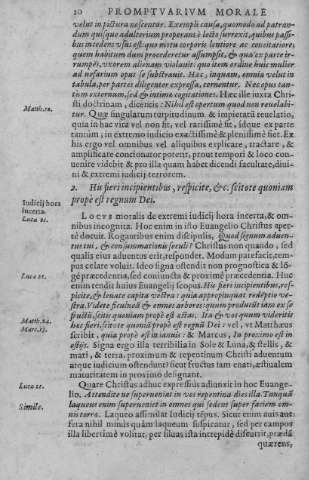 20 PROMPTVARIVM MORALE
velut in pictura nescentur. Exempli causa, quomodo ad patrandum quisque adulterium properans è lecto surrexit, quibus passibus incedens
quem habitum dum procederet assumpsit, & qua ex parte irrumpes, vxorem alienam violauit: quo item ordine huic mulier
ad nefarium opus se substrauit. Hæc, inquam, omnia velut in
tabula, per partes diligenter expressa, cernentur. Nec opus tantum externum, sed & intima cogitatione. Hæc ille iuxta Christi doctrinam, dicentis: Nihil est opertum quod non reuelabitur.
Matth. 10.
Quæ singularum turpitudinum & impietatū reuelatio,
quia in hac vita vel non fit, vel rarissimè fit, idque ex parte
tantùm, in extremo iudicio exactissimè & plenissimè fiet. Ex
his ergo vel omnibus vel aliquibus explicare, tractare, &
amplificare concionator poterit, prout tempori & loco conuenire videbit & pro illa quam habet dicendi facultate, diuini & extremi iudicij terrorem.
2. His fieri incipientibus, respicite, &c. scitote quoniam
propè est regnum Dei.
Iudicij hora incerta.
Luca 21.
LOCVS moralis de extremi iudicij hora incerta, & omnibus incognita. Hoc enim in isto Euangelio Christus apertè docuit. Rogantibus enim discipulis, Quod signum aduentus tui, & consummationis seculi? Christus non quando, sed
qualis eius aduentus erit, respondet. Modum patefacit, tempus celare voluit. Ideo signa ostendit non prognostica & longè præcedentia, sed coniuncta & proximè præcedentia. Huc
Luca 21.
enim tendit huius Euangelij scopus. His fieri incipientibus, respicite, & leuate capita vestra: quia appropinquat redēptio vestra. Videte ficulneā & omnes arbores: quum producūt iam ex se
fructū, scitis quoniam propè est æstas. Ita & vos quum videritis
Matth. 24.
Marc. 13.
hæc fieri, scitote quoniā propè est regnū Dei: vel, vt Matthæus
scribit, quia propè est in ianuis: & Marcus, In proximo est in
ostijs. Signa ergo illa terribilia in Sole & Luna, & stellis, &
mari, & terra, proximum & repentinum Christi aduentum
atque iudicium ostendunt: sicut fructus iam enati, æstiualem
maturitatem in proximo designant.
Luca 21.
Quare Christus adhuc expressius adiunxit in hoc Euangelio. Attendite ne superueniat in vos repentina dies illa. Tanquā
Simile.
laqueus enim superueniet in omnes qui sedent super faciem omnis terræ. Laqueo assimilat Iudicij tēpus. Sicut enim auis aut
fera nihil minùs quàm laqueum suspicatur, sed per campos
illa liberrimè volitat, per siluas ista intrepidè discurrit, prædā
quærens,